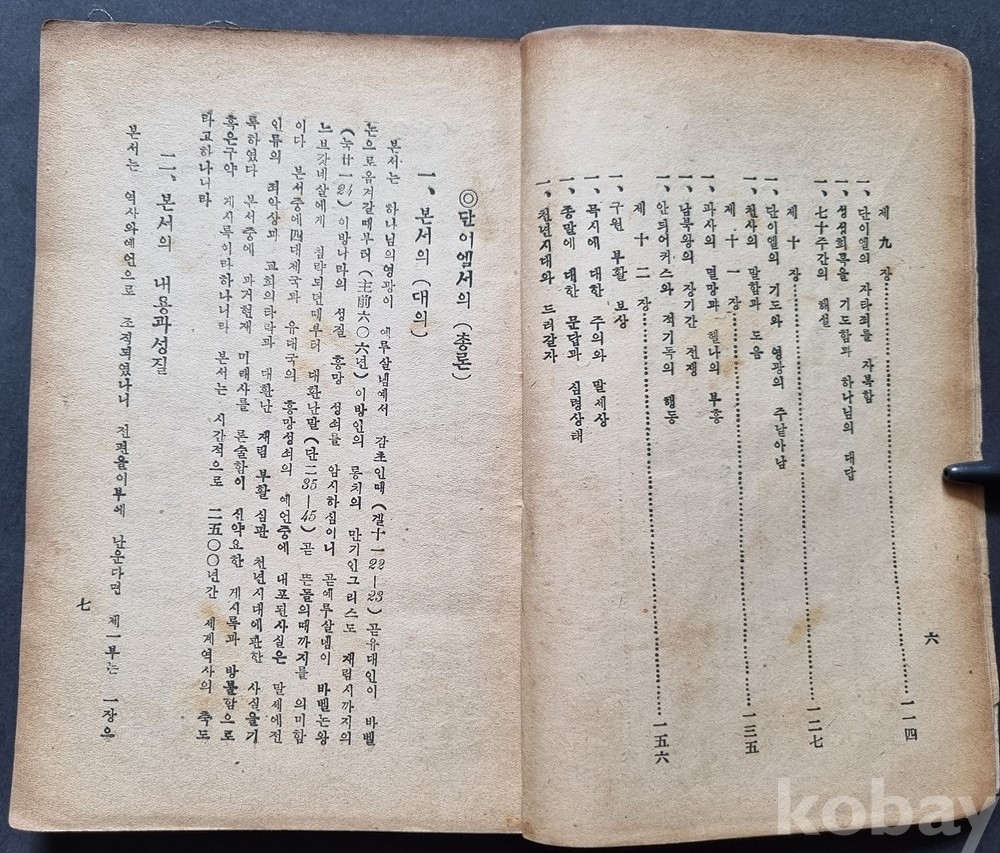 六
제 九 장 ………… 一一四
一、단이엘의 자타죄를 자복함
一、성경희록을 기도함과 하나님의 대답
一、七十주간의 해설
제 十 장 ………… 一二七
一、단이엘의 기도와 영광의 주낱아남
一、천사의 말함과 도움
제 十 一 장 ………… 一三五
一、파사의 멸망과 헬나의 부흥
一、남북왕의 장기간 전쟁
一、안틔어커스와 적기독의 행동
제 十 二 장 ………… 一五六
一、구원 부활 보상
一、묵시에 대한 주의와 말세상
一、종말에 대한 문답과 심령상태
一、천년시대와 드리갈자
◎단이엘서의 (총론)
一、본서의 (대의)
본서는 하나님의영광이 예루살넴에서 감초인때 (겔十一22—23) 곧유대인이 바벨
논으로옴겨갈때부터 (主前六〇六년) 이방인의 통치의 만기인그리스도 재림시까지의
(눅廿一24) 이방나라의 성질 흥망 성쇠를 암시하심이니 곧예루살넴이 바벨논왕
느브갓네살에게 침략되던때부터 대환난말 (단二35—45) 곧 뜬돌의때까지를 의미함
이다 본서중에四대제국과 유대국의 흥망성쇠의 예언중에 내포된사실은 말세에전
인류의 죄악상과 교회의타락과 대환난 재림 부활 심판 천년시대에관한 사실을기
록하였다 본서중에 과거현재 미래사를 론술함이 신약요한 게시록과 방불함으로
혹은구약 게시록이라하나니라 본서는 시간적으로 二五〇〇년간 세계역사의 축도
라고하나니라
二、본서의 내용과성질
본서는 역사와예언으로 조직되였나니 전편을이부에 난운다면 제一부는 一장으
七
kobay